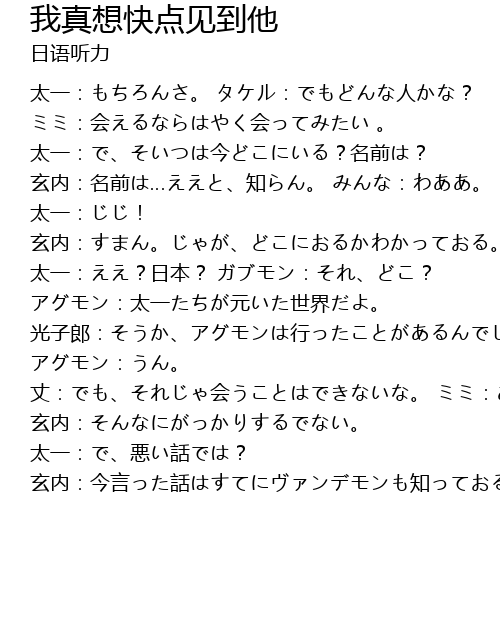 我真想快点见到他
日语听力
太一：もちろんさ。 タケル：でもどんな人かな？
ミミ：会えるならはやく会ってみたい 。
太一：で、そいつは今どこにいる？名前は？
玄内：名前は...ええと、知らん。 みんな：わああ。
太一：じじ！
玄内：すまん。じゃが、どこにおるかわかっておる。
太一：ええ？日本？ ガブモン：それ、どこ？
アグモン：太一たちが元いた世界だよ。
光子郎：そうか、アグモンは行ったことがあるんでし
アグモン：うん。
丈：でも、それじゃ会うことはできないな。 ミミ：
玄内：そんなにがっかりするでない。
太一：で、悪い話では？
玄内：今言った話はすてにヴァンデモンも知っておる